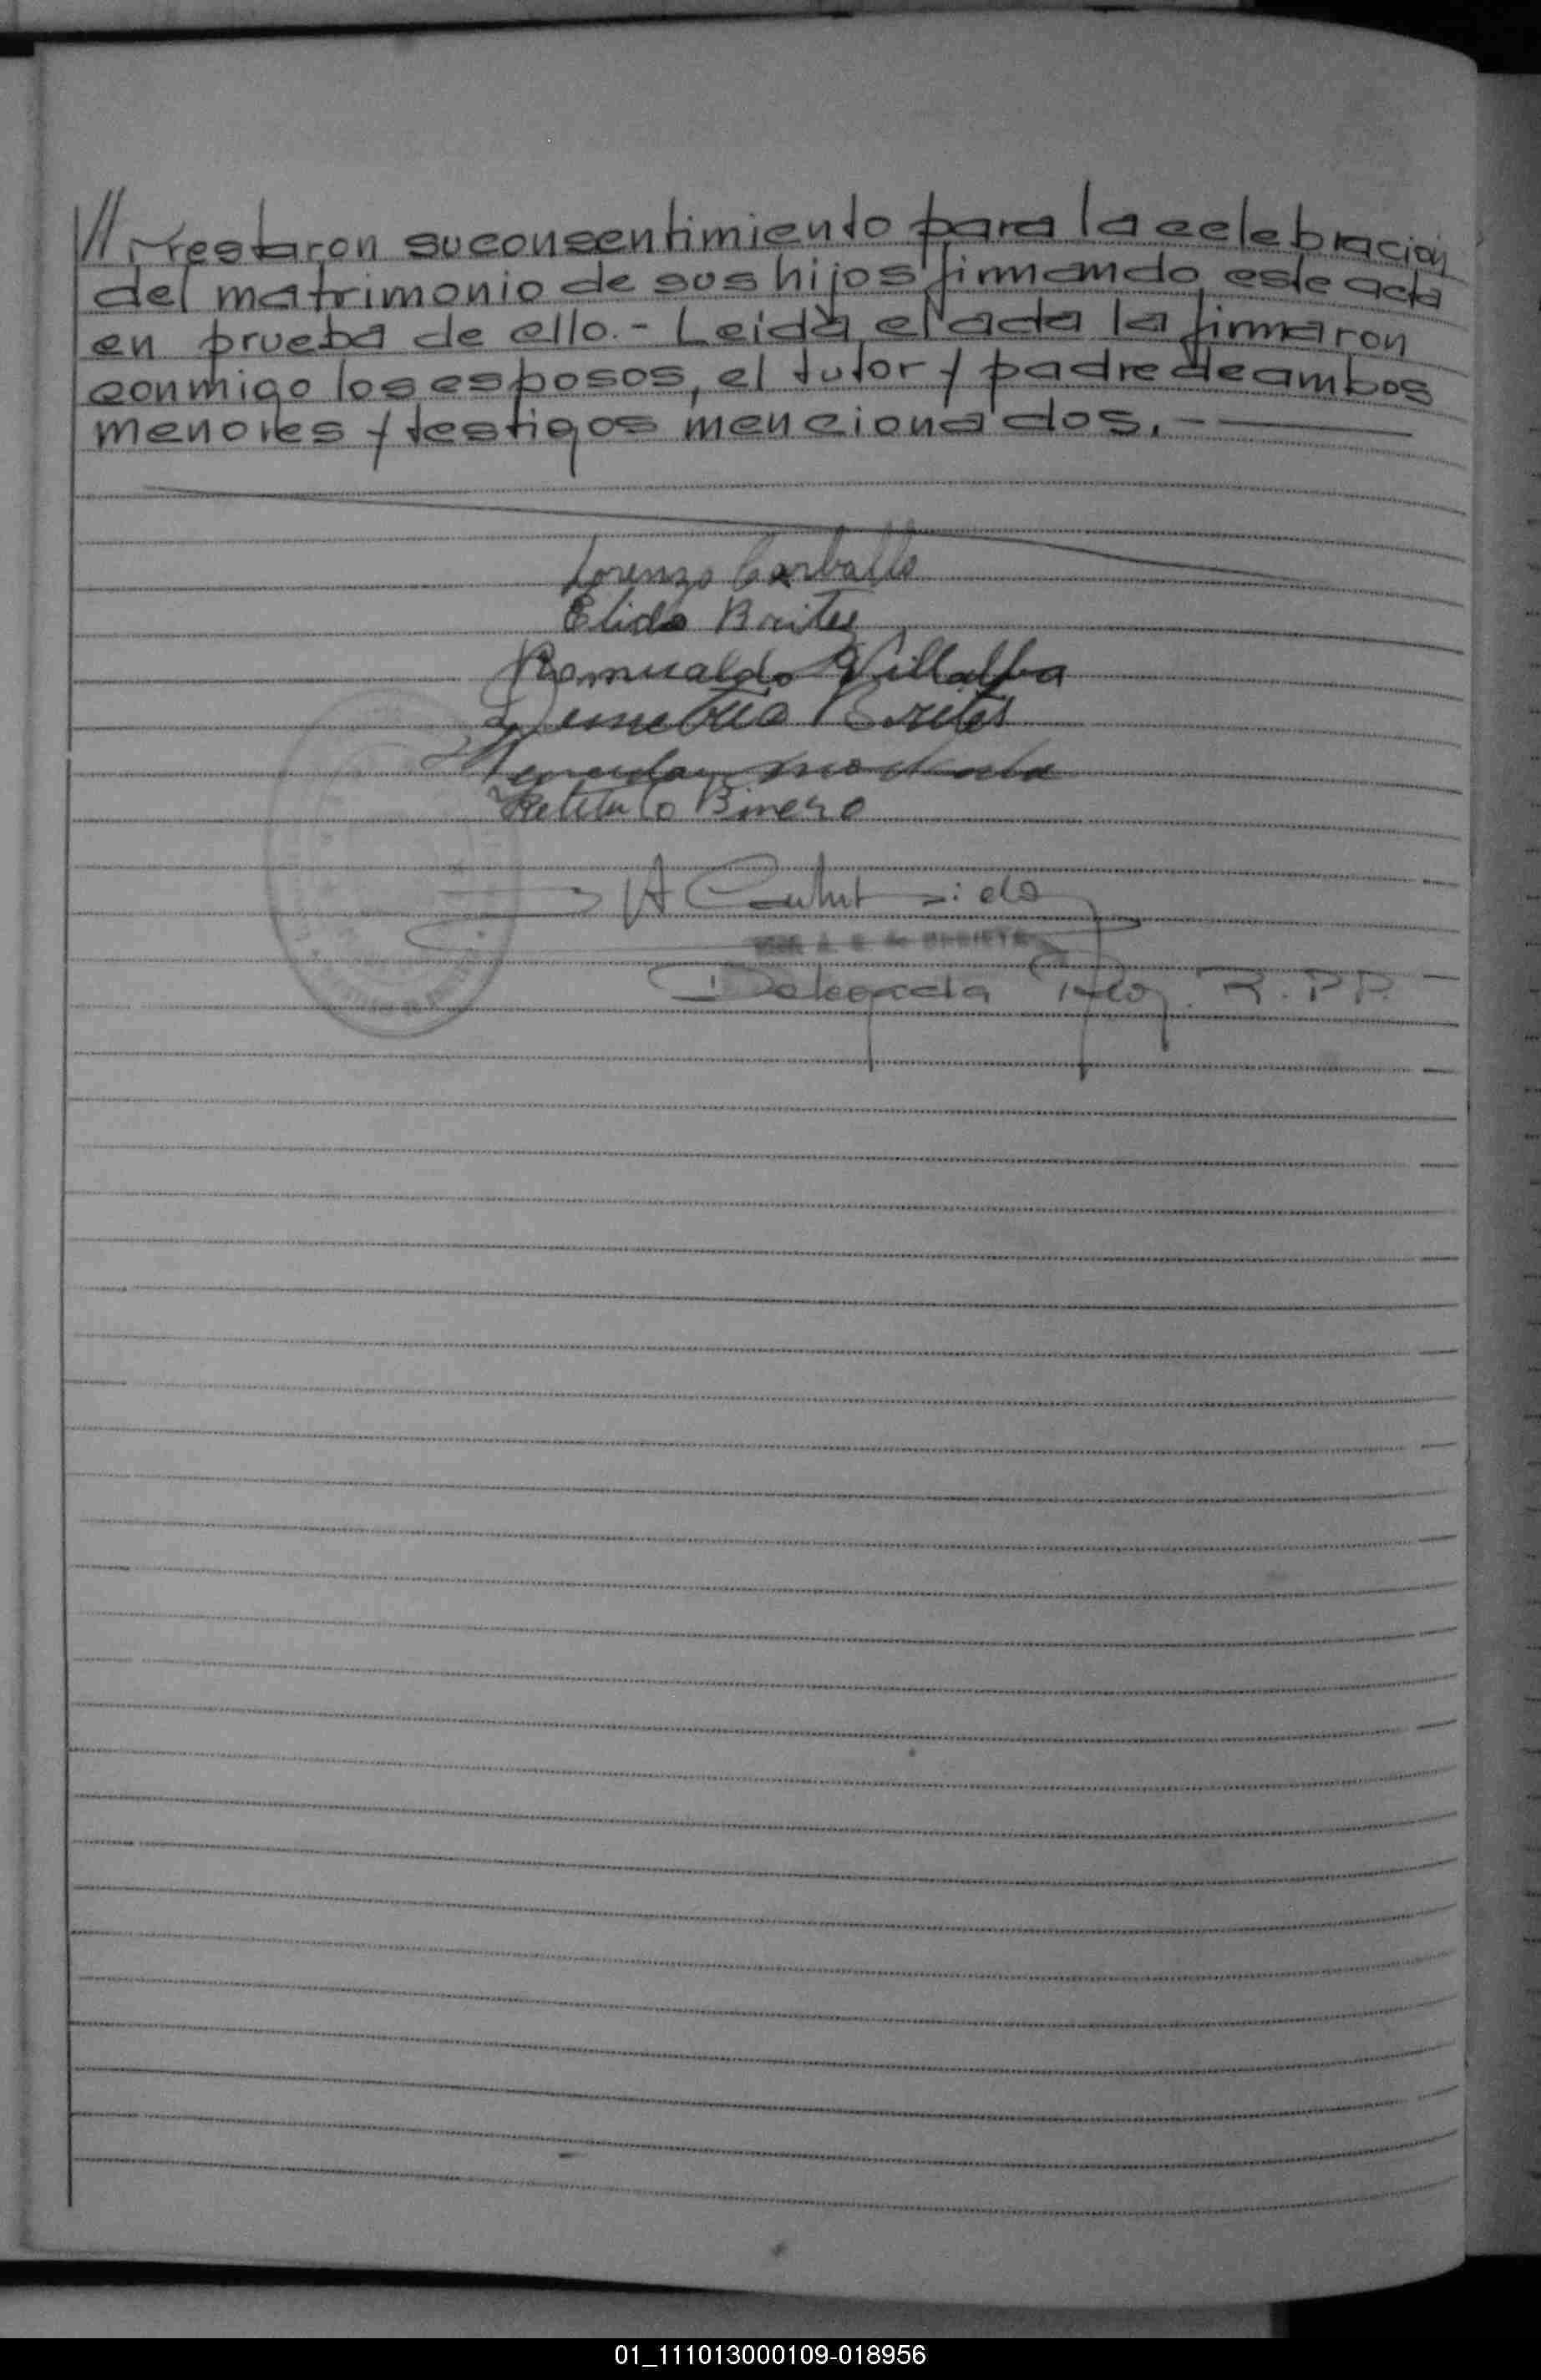 // Prestaron su consentimiento para la celebración
del matrimonio de sus hijos firmando este acta
en prueba de ello.- Leida el acta la firmaron
conmigo los esposos, el tutor y padre de ambos
menores y testigos mencionados.-
Lorenzo Carballo
Elida Brites
Romualdo Villalba
Demetrio Brites
Binero
Delegada R. P. P.
01_111013000109-018956